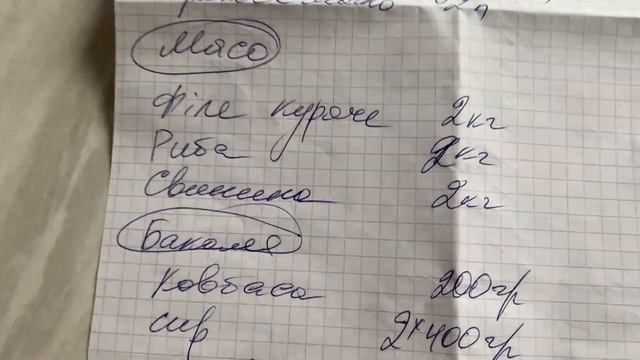 М'ясо
Філе куряче 2кг
Риба 2кг
Свинина 2кг
Бакалея
Ковбаса 200гр
сир 2*400гр